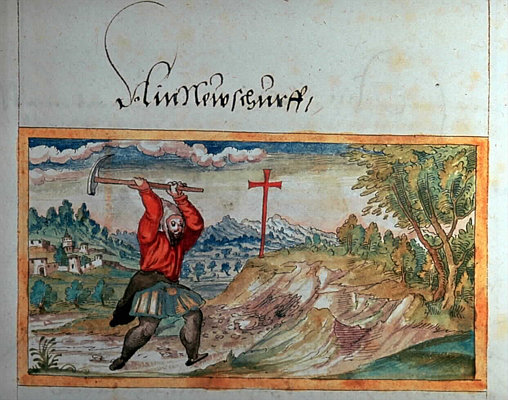 Ain Newschurff,